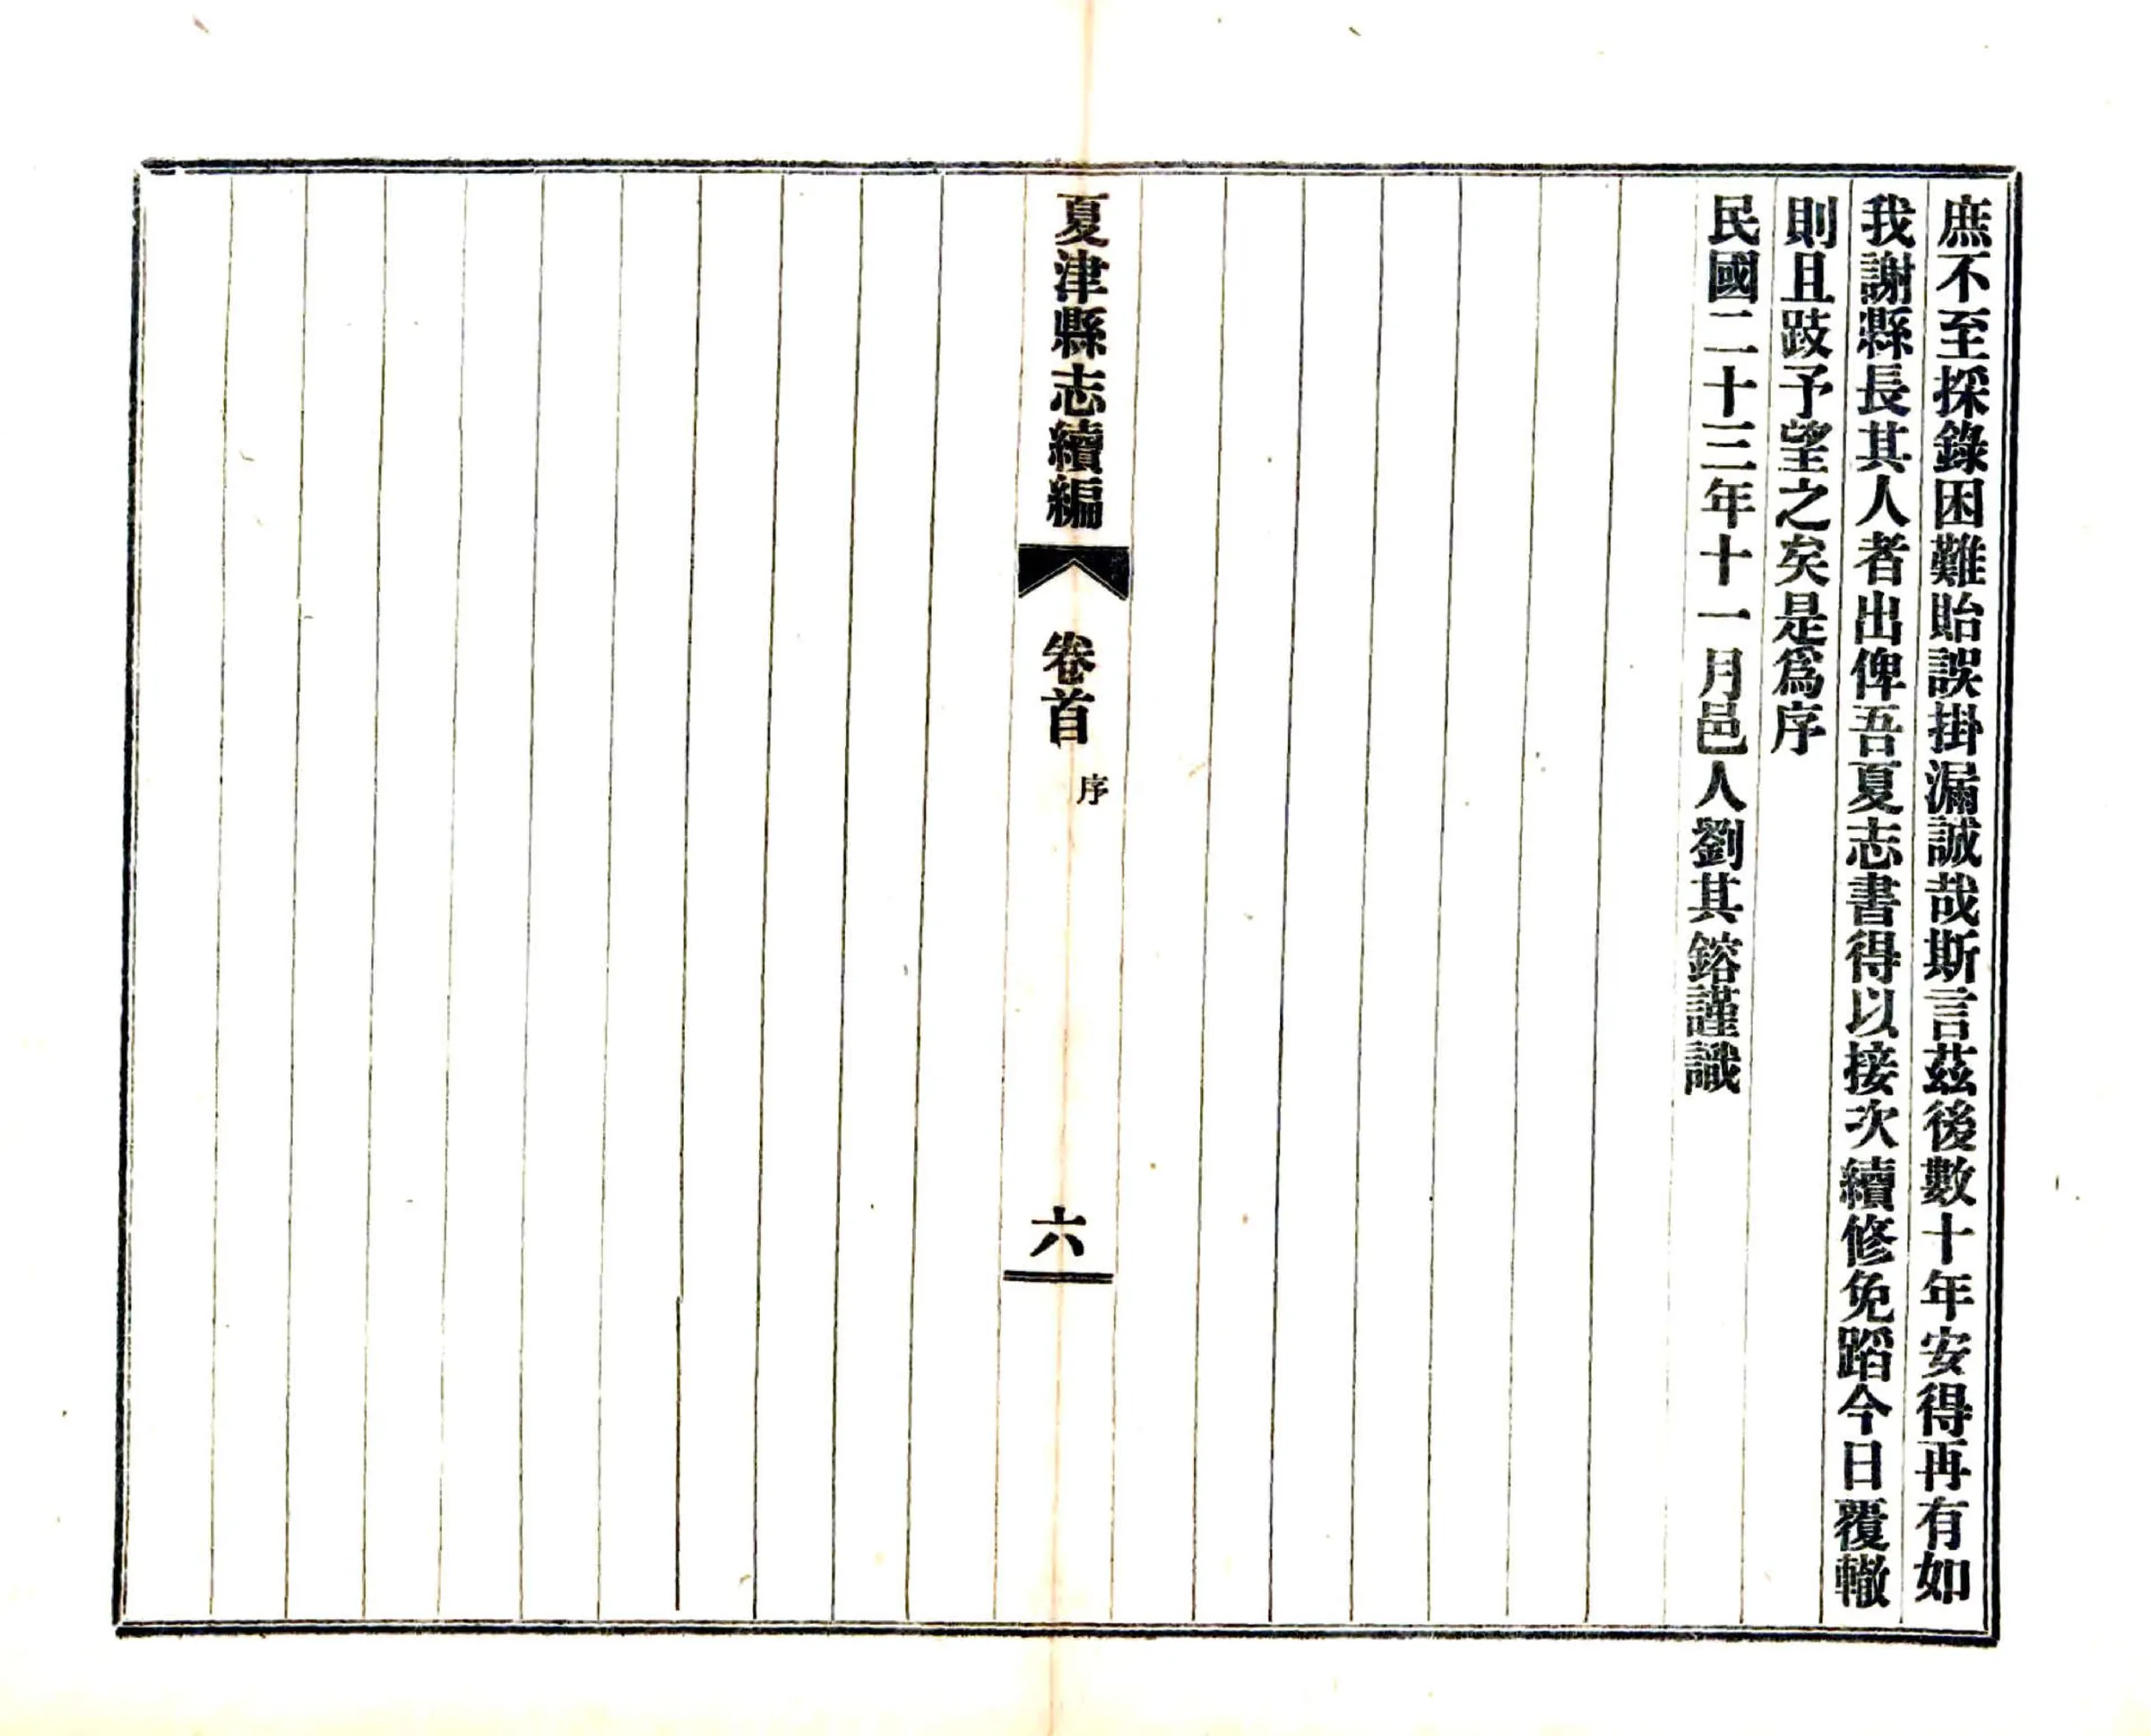 庶不至採錄困難貽誤掛漏誠哉斯言茲後數十年安得再有如
我謝縣長其人者出俾吾夏志書得以接次續修免蹈今日覆轍
則且跂予望之矣是爲序
民國二十三年十一月邑人劉其鎔謹識
夏津縣志續編
卷首
序
六